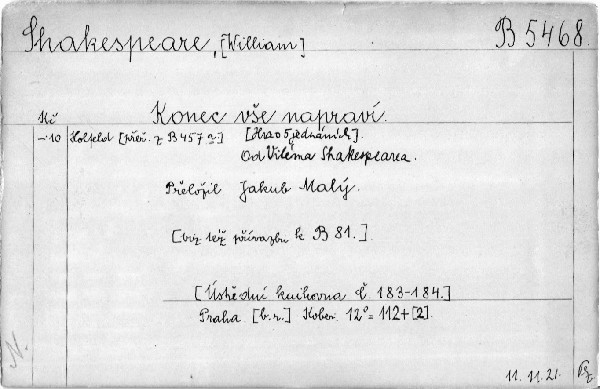 Shakespeare, [William] B 5468.
Kč Konec vše napraví.
-·10 [přeř. z B 457] [Hra o 5 jednáních].
Od Viléma Shakespearea.
Přeložil Jakub Malý.
[viz též přívazbu k B 81.]
[Ústřední knihovna č. 183-184.]
Praha [b.r.] Kober 12° = 112+[2].
11. 11. 21.